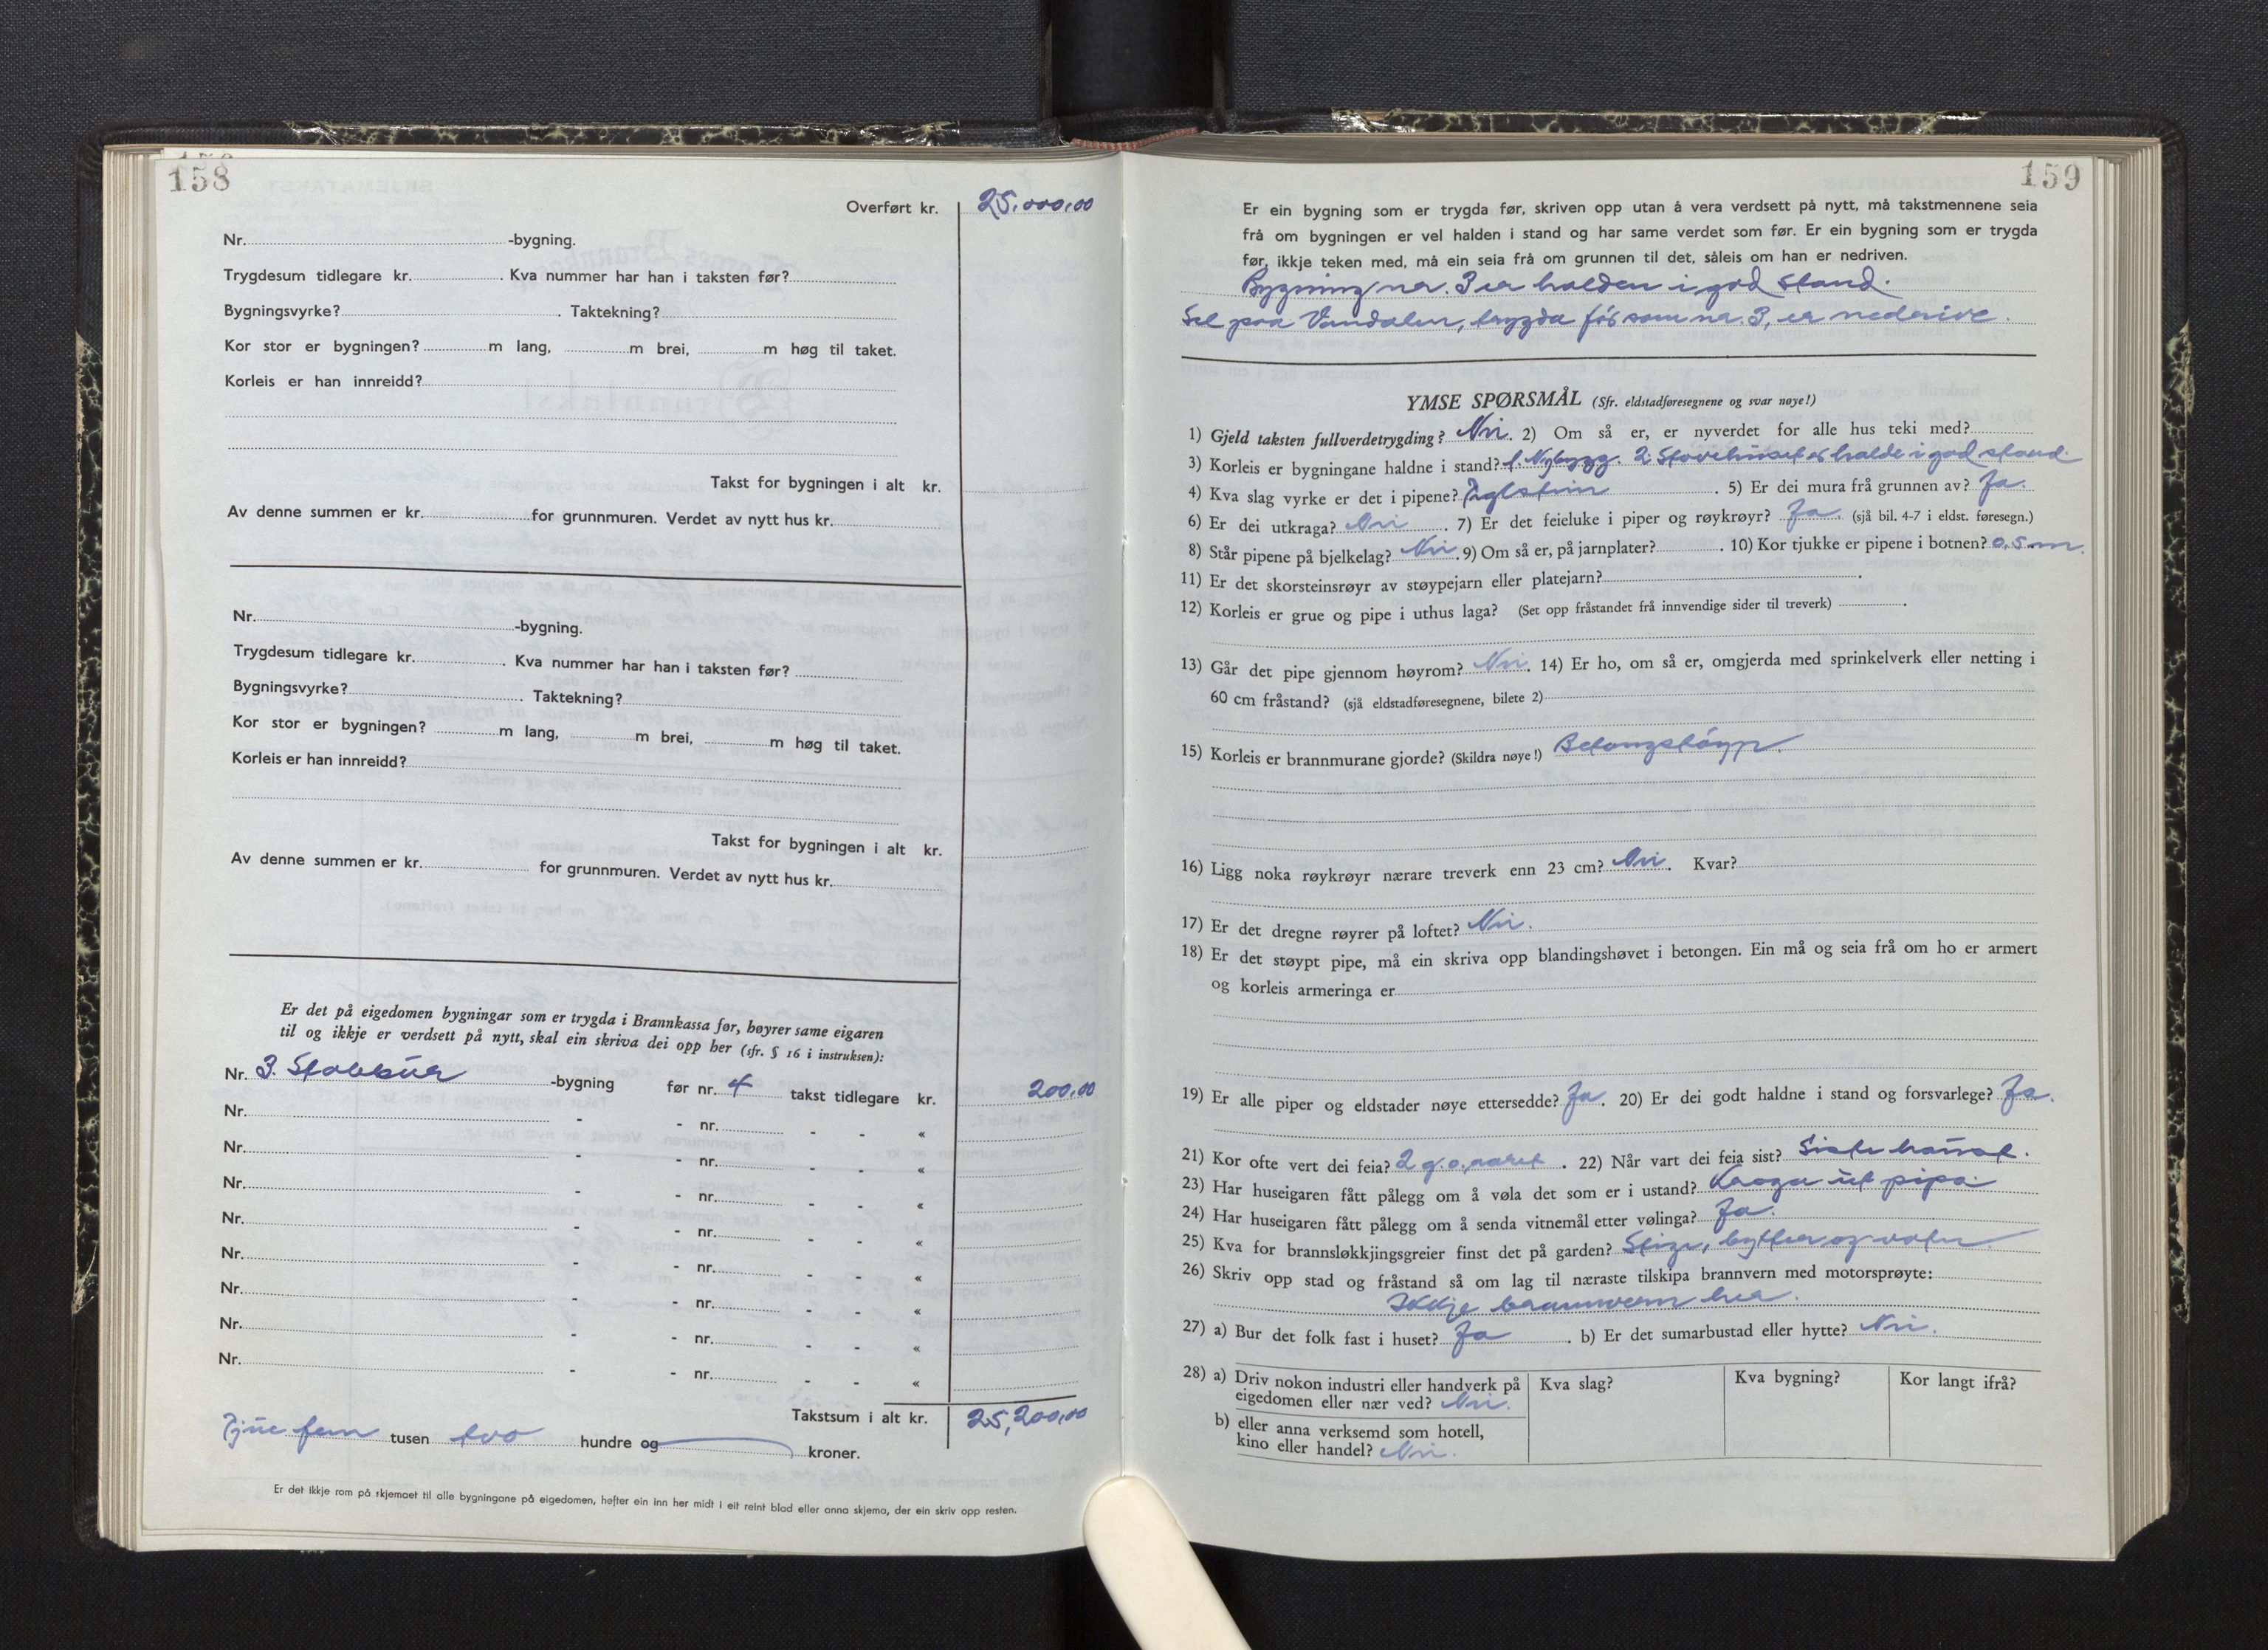 158
Overført kr. 25.000,00
Nr. -bygning.
Trygdesum tidlegare kr. . Kva nummer har han i taksten før?
Bygningsvyrke? . Taktekning?
Kor stor er bygningen? m lang, m brei, m høg til taket.
Korleis er han innreidd?
Takst for bygningen i alt kr.
Av denne summen er kr. for grunnmuren. Verdet av nytt hus kr.
Nr. -bygning.
Trygdesum tidlegare kr. . Kva nummer har han i taksten før?
Bygningsvyrke? . Taktekning?
Kor stor er bygningen? m lang, m brei, m høg til taket.
Korleis er han innreidd?
Takst for bygningen i alt kr.
Av denne summen er kr. for grunnmuren. Verdet av nytt hus kr.
Er det på eigedomen bygningar som er trygda i Brannkassa før, høyrer same eigaren
til og ikkje er verdsett på nytt, skal ein skriva dei opp her (sfr. § 16 i instruksen):
Nr. 3. Stabbúr -bygning før nr. 4 takst tidlegare kr. 200,00
Nr. - - nr. - - «
Nr. - - nr. - - «
Nr. - - nr. - - «
Nr. - - nr. - - «
Nr. - - nr. - - «
Nr. - - nr. - - «
Nr. - - nr. - - «
Nr. - - nr. - - «
Takstsum i alt kr. 25,200,00
Tjue fem tusen two hundre og kroner.
Er det ikkje rom på skjemaet til alle bygningane på eigedomen, hefter ein inn her midt i eit reint blad eller anna skjema, der ein skriv opp resten.
159
Er ein bygning som er trygda før, skriven opp utan å vera verdsett på nytt, må takstmennene seia
frå om bygningen er vel halden i stand og har same verdet som før. Er ein bygning som er trygda
før, ikkje teken med, må ein seia frå om grunnen til det, såleis om han er nedriven.
Bygning nr. 3 er halden i god stand.
Sel paa Vandalen, trygda før som nr. 3, er nederive.
YMSE SPØRSMÅL (Sfr. eldstadføresegnene og svar nøye!)
1) Gjeld taksten fullverdetrygding? Nei. 2) Om så er, er nyverdet for alle hus teki med?
3) Korleis er bygningane haldne i stand? 1. Nybygg. 2. Stovehuset er halde i god stand.
4) Kva slag vyrke er det i pipene? Teglstein . 5) Er dei mura frå grunnen av? Ja.
6) Er dei utkraga? Nei . 7) Er det feieluke i piper og røykrøyr? Ja. (sjå bil. 4-7 i eldst. føresegn.)
8) Står pipene på bjelkelag? Nei. 9) Om så er, på jarnplater? . 10) Kor tjukke er pipene i botnen? 0,5 m.
11) Er det skorsteinsrøyr av støypejarn eller platejarn? .
12) Korleis er grue og pipe i uthus laga? (Set opp fråstandet frå innvendige sider til treverk) .
13) Går det pipe gjennom høyrom? Nei. 14) Er ho, om så er, omgjerda med sprinkelverk eller netting i
60 cm fråstand? (sjå eldstadføresegnene, bilete 2)
15) Korleis er brannmurane gjorde? (Skildra nøye!) Betongstøyp.
16) Ligg noka røykrøyr nærare treverk enn 23 cm? Nei. Kvar?
17) Er det dregne røyrer på loftet? Nei.
18) Er det støypt pipe, må ein skriva opp blandingshøvet i betongen. Ein må og seia frå om ho er armert
og korleis armeringa er
19) Er alle piper og eldstader nøye ettersedde? Ja. 20) Er dei godt haldne i stand og forsvarlege? Ja.
21) Kor ofte vert dei feia? 2 g. o. aaret . 22) Når vart dei feia sist? Siste haust.
23) Har huseigaren fått pålegg om å vøla det som er i ustand? ut pipa.
24) Har huseigaren fått pålegg om å senda vitnemål etter vølinga? Ja.
25) Kva for brannsløkkjingsgreier finst det på garden? Stige, bytter og vatn.
26) Skriv opp stad og fråstand så om lag til næraste tilskipa brannvern med motorsprøyte:
Ikkje brannvern her.
27) a) Bur det folk fast i huset? Ja . b) Er det sumarbustad eller hytte? Nei.
28) a) Driv nokon industri eller handverk på
eigedomen eller nær ved? Nei.
Kva slag? Kva bygning? Kor langt ifrå?
b) eller anna verksemd som hotell,
kino eller handel? Nei.